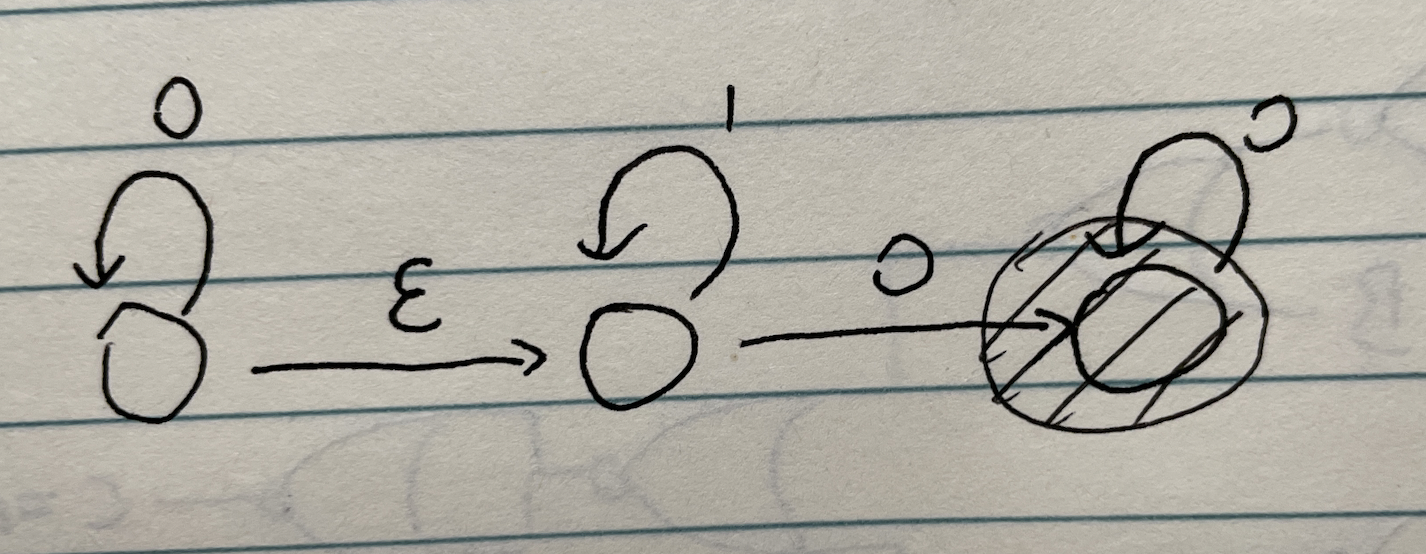 0 1 0
ε 0